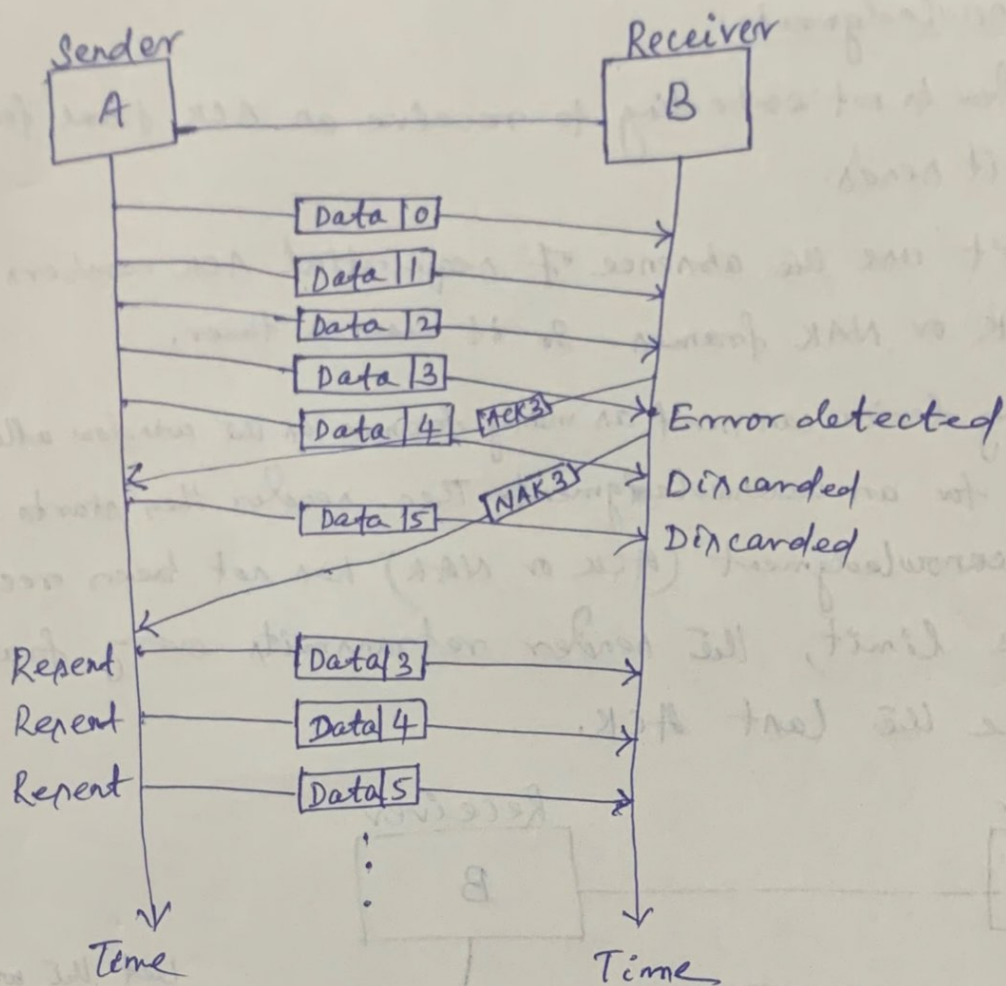 Sender
Receiver
A
B
Data 0
Data 1
Data 2
Data 3
ACK3
Error detected
Data 4
Discarded
NAK 3
Data 5
Discarded
Resent
Data 3
Resent
Data 4
Resent
Data 5
Time
Time